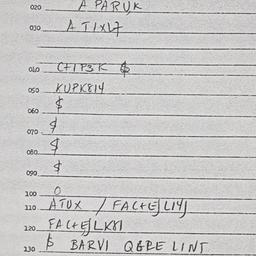 020 A PARUK
030 A TIXL7
040 C+1P3K $
050 KUPK814
060 $
070 $
080 $
090 $
100 0
110 ATUX / FAC+EJLI4J
120 FAC+EJLK81
130 $ BARVI QGRE LINT